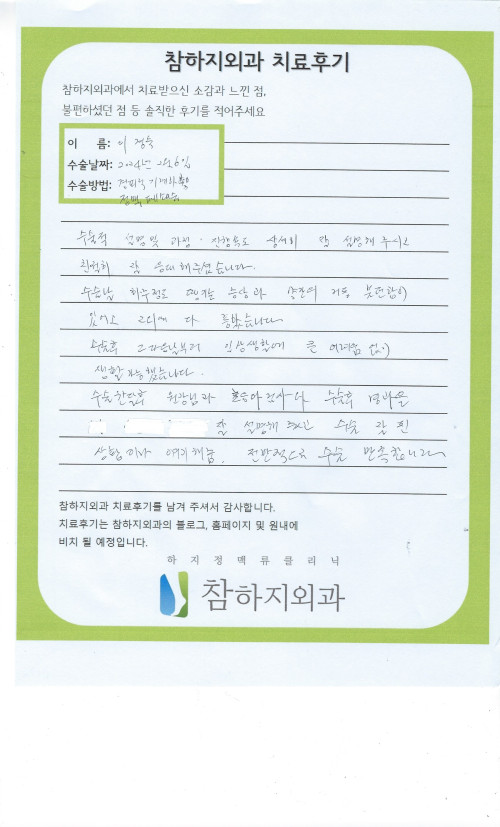 참하지외과 치료후기
참하지외과에서 치료받으신 소감과 느낀 점,
불편하셨던 점 등 솔직한 후기를 적어주세요
이 름: 이
수술날짜: 2024년 2월 6일
수술방법: 경피적 기계화학
정맥 폐쇄술
수술적 설명 및 과정·진행속도 상세히 잘 설명해 주시고
친절히 잘 응대해주셨습니다.
수술날 하루정도 걷기는 압박 불편함이
있어요 그외에 다 좋았습니다
수술후 그다음날부터 일상생활에 큰 어려움 없이
생활가능했습니다.
수술 한달후 원장님과 초음파 검사 다 수술후 경과를
잘 설명해 주시고 수술 잘 된
상황이라 얘기해줌. 전반적으로 수술 만족합니다
참하지외과 치료후기를 남겨 주셔서 감사합니다.
치료후기는 참하지외과의 블로그, 홈페이지 및 원내에
비치 될 예정입니다.
하지정맥류클리닉
참하지외과